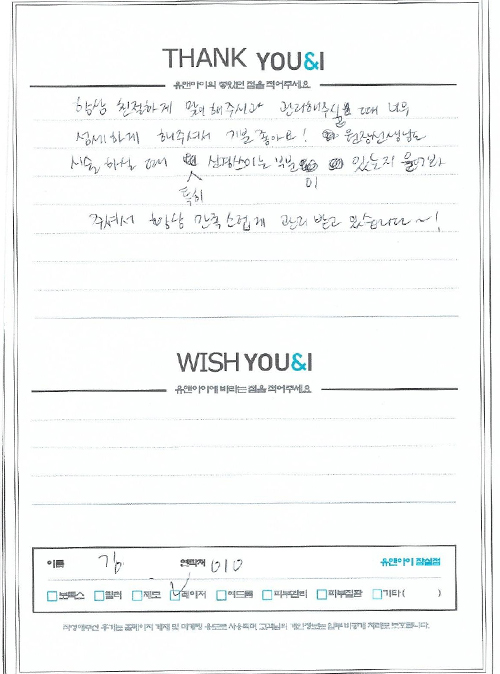 THANK YOU&I
유앤아이의 좋았던 점을 적어주세요
항상 친절하게 맞이해주시고 관리해주실 때 너무
섬세하게 해주셔서 기분 좋아요! 원장선생님도
시술 하실 때 특히 신경쓰이는 부분이 있는지 물어봐
주셔서 항상 만족스럽게 관리 받고 있습니다~!
WISH YOU&I
유앤아이에 바라는 점을 적어주세요
이름 김 연락처 010 유앤아이 잠실점
보톡스 필러 제모 레이저 여드름 피부관리 피부질환 기타( )